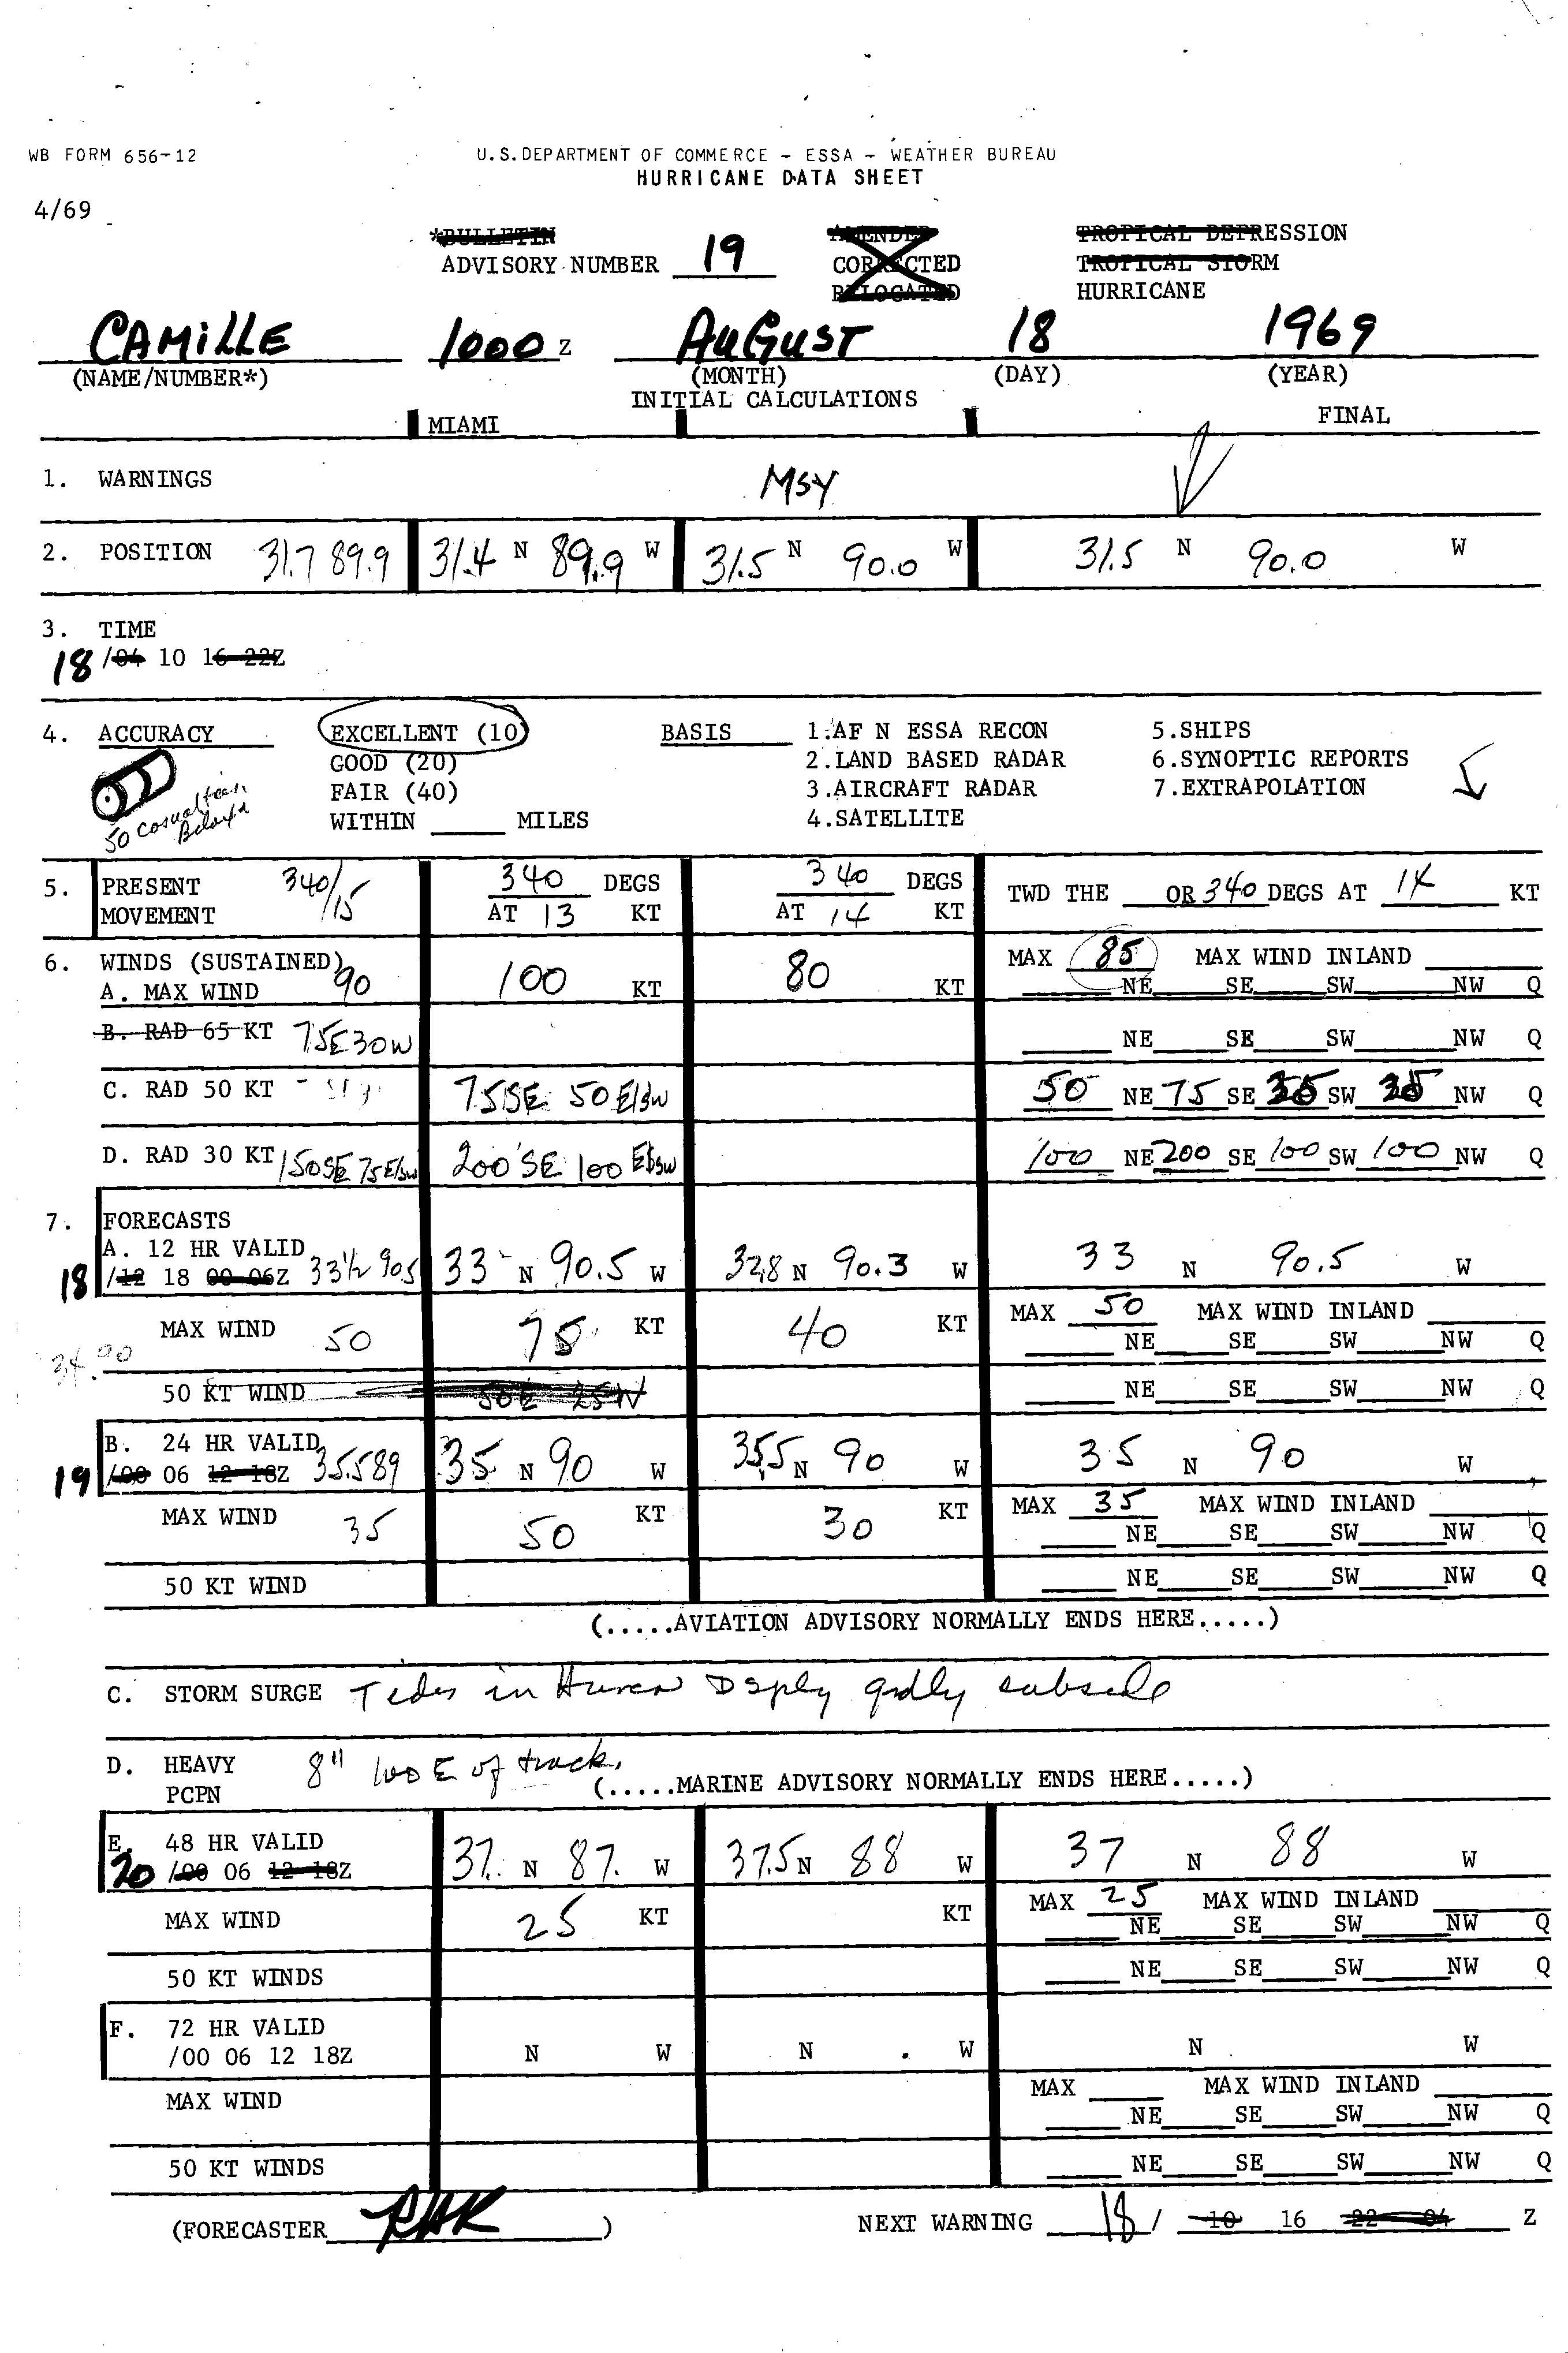 WB FORM 656-12
U.S. DEPARTMENT OF COMMERCE - ESSA - WEATHER BUREAU
HURRICANE DATA SHEET
4/69
*BULLETIN AMENDED TROPICAL DEPRESSION
ADVISORY NUMBER 19 CORRECTED TROPICAL STORM
RELOCATED HURRICANE
CAMILLE 1000 Z AUGUST 18 1969
(NAME/NUMBER*) (MONTH) (DAY) (YEAR)
INITIAL CALCULATIONS
MIAMI FINAL
1. WARNINGS MSY
2. POSITION 31.7 89.9 31.4 N 89.9 W 31.5 N 90.0 W 31.5 N 90.0 W
3. TIME
18 /04 10 16 22Z
4. ACCURACY EXCELLENT (10) BASIS 1.AF N ESSA RECON 5.SHIPS
GOOD (20) 2.LAND BASED RADAR 6.SYNOPTIC REPORTS
FAIR (40) 3.AIRCRAFT RADAR 7.EXTRAPOLATION
WITHIN MILES 4.SATELLITE
50 casualties
Biloxi
5. PRESENT 340/15 340 DEGS 340 DEGS TWD THE OR 340 DEGS AT 14 KT
MOVEMENT AT 13 KT AT 14 KT
6. WINDS (SUSTAINED) MAX 85 MAX WIND INLAND
A. MAX WIND 90 100 KT 80 KT NE SE SW NW Q
B. RAD 65 KT 75E 30W NE SE SW NW Q
C. RAD 50 KT 75SE 50 E/SW 50 NE 75 SE SW NW Q
D. RAD 30 KT 150SE 75E/SW 200 SE 100 E/SW 100 NE 200 SE 100 SW 100 NW Q
7. FORECASTS
A. 12 HR VALID
18 /12 18 00 06Z 33 1/2 905 33 N 90.5 W 32.8 N 90.3 W 33 N 90.5 W
MAX WIND 50 75 KT 40 KT MAX 50 MAX WIND INLAND
NE SE SW NW Q
34. 90
50 KT WIND 50E 25W NE SE SW NW Q
B. 24 HR VALID
19 /00 06 12 18Z 35.5 89 35 N 90 W 35.5 N 90 W 35 N 90 W
MAX WIND 35 50 KT 30 KT MAX 35 MAX WIND INLAND
NE SE SW NW Q
50 KT WIND NE SE SW NW Q
(.....AVIATION ADVISORY NORMALLY ENDS HERE.....)
C. STORM SURGE Tides in Dsply grdly subside
D. HEAVY 8" 100 E of track.
PCPN (.....MARINE ADVISORY NORMALLY ENDS HERE.....)
E. 48 HR VALID
20 /00 06 12 18Z 37. N 87. W 37.5 N 88 W 37 N 88 W
MAX WIND 25 KT KT MAX 25 MAX WIND INLAND
NE SE SW NW Q
50 KT WINDS NE SE SW NW Q
F. 72 HR VALID
/00 06 12 18Z N W N W N W
MAX WIND MAX MAX WIND INLAND
NE SE SW NW Q
50 KT WINDS NE SE SW NW Q
(FORECASTER RHK) NEXT WARNING 18 / 10 16 22 04 Z